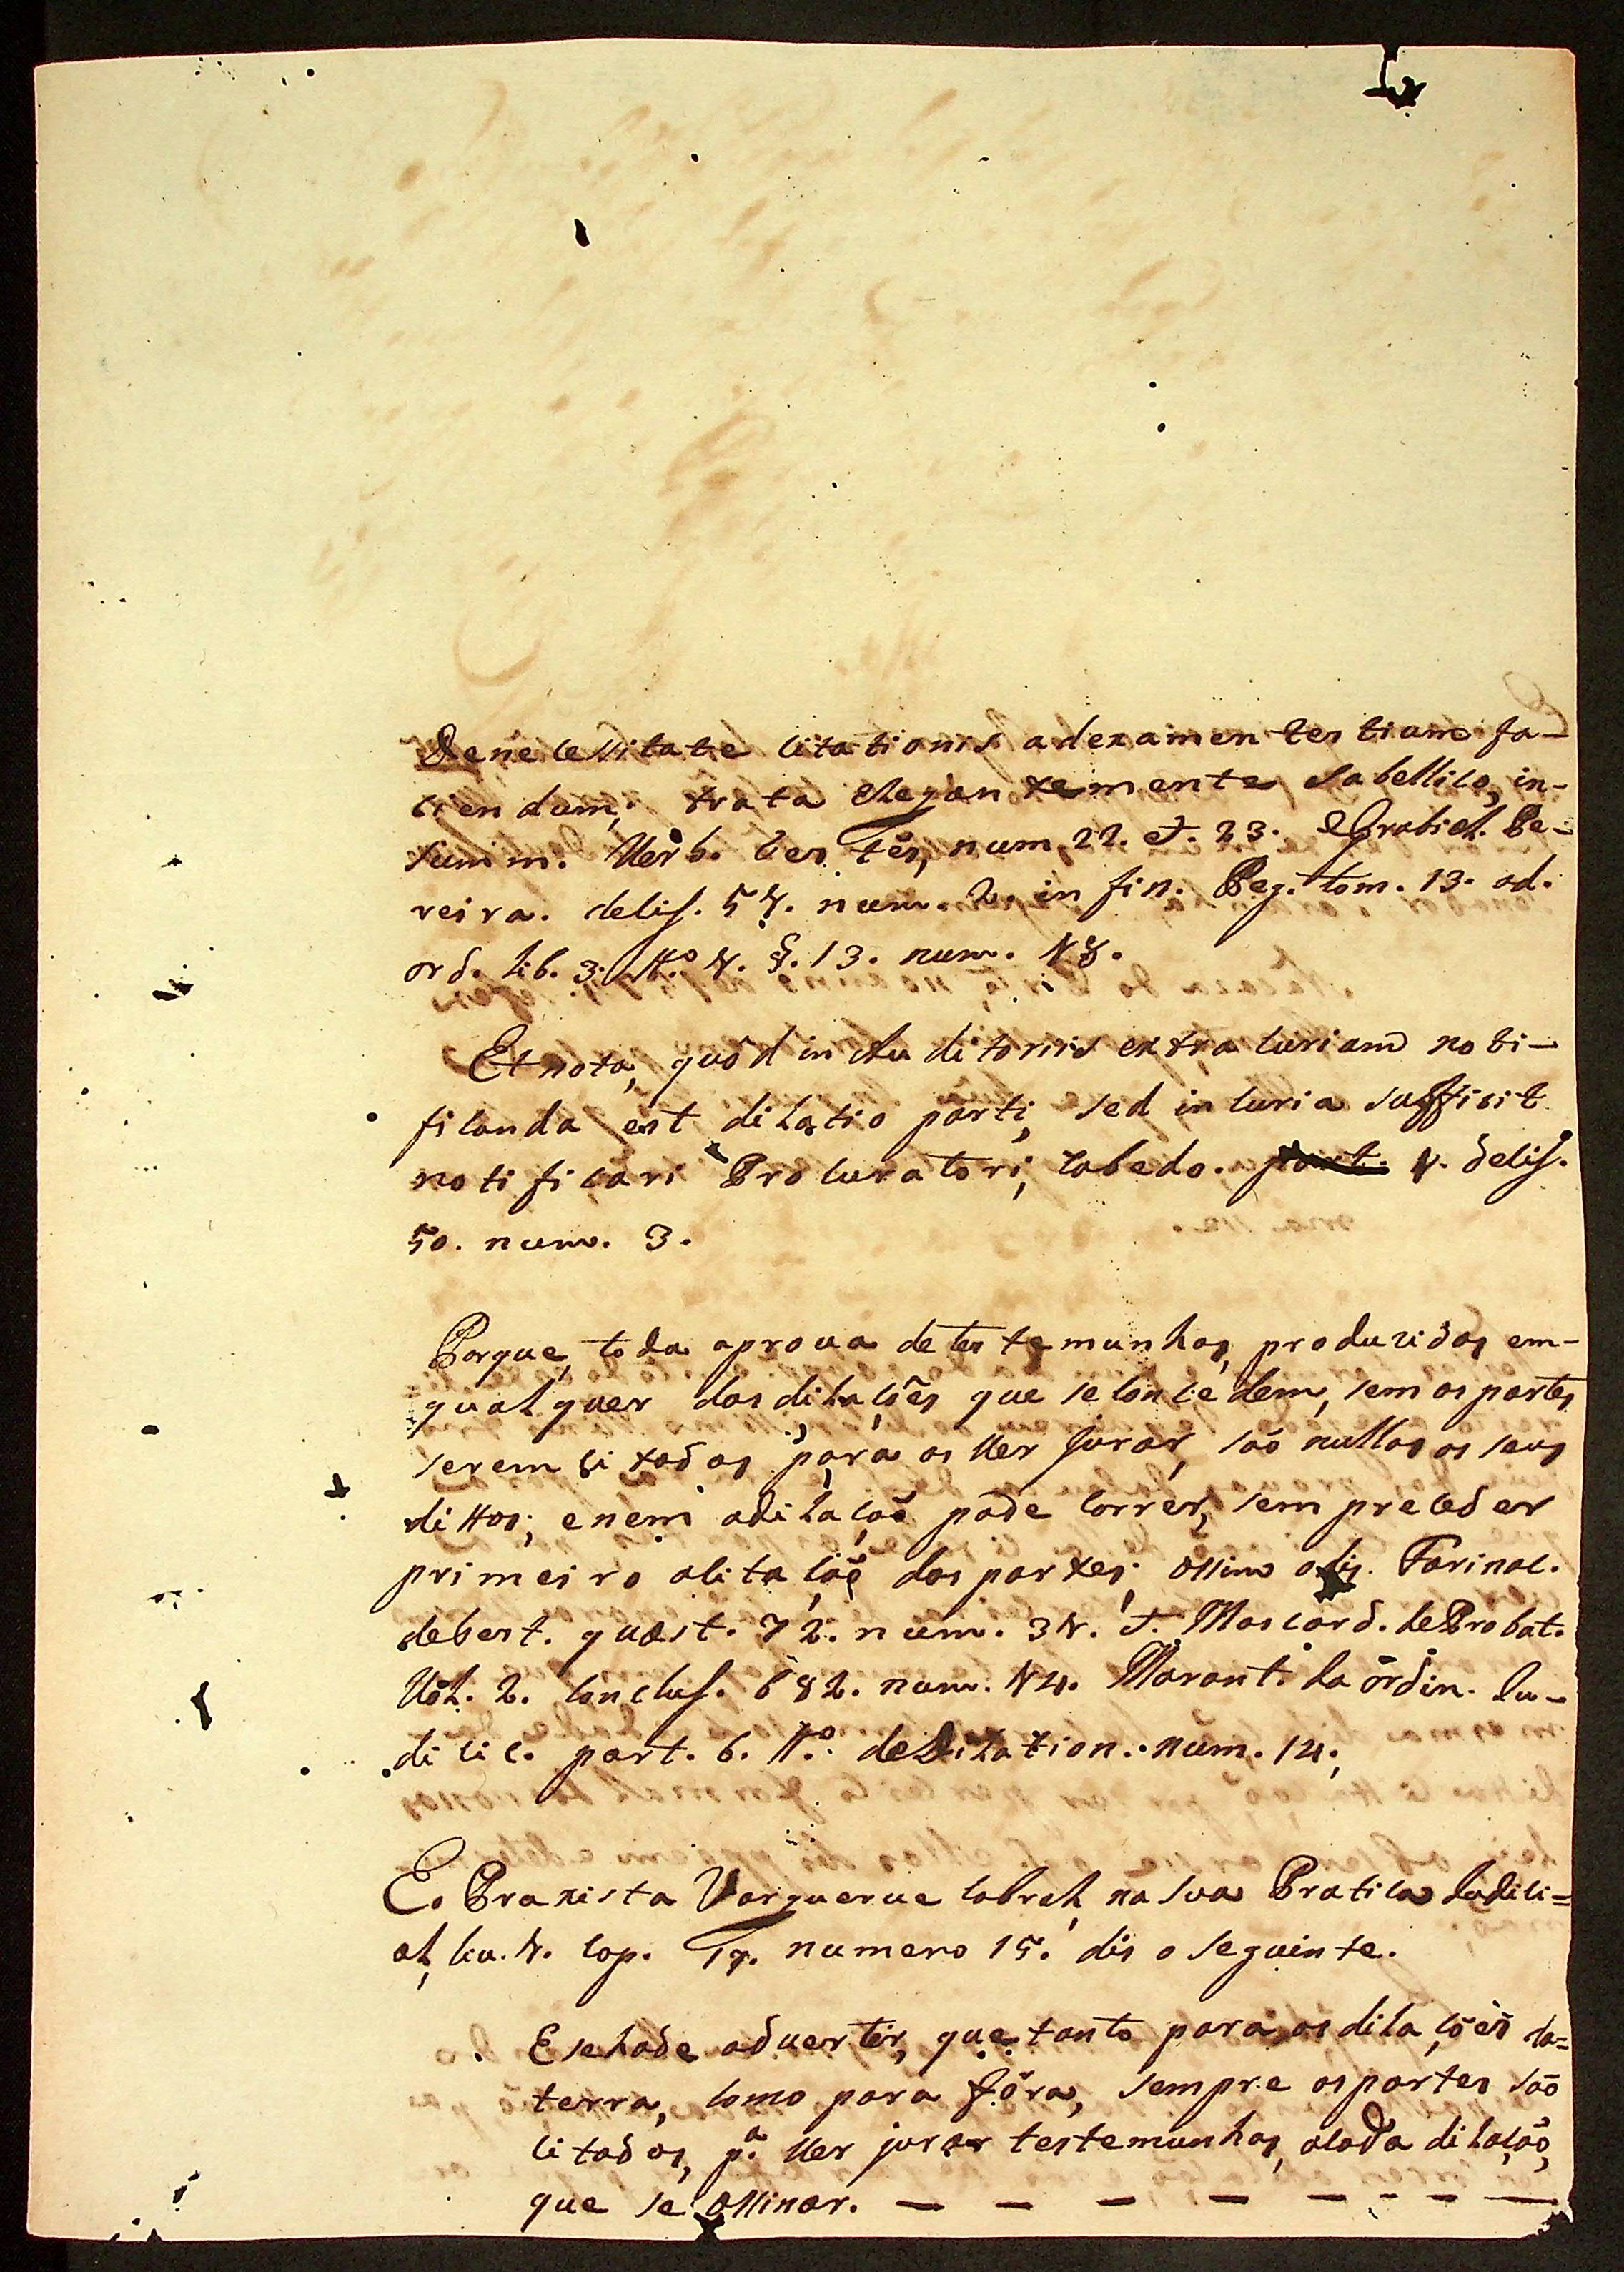 De necessitate citationis ad examen testium fa-
ciendum; trata elegantemente Sabellico, in-
summ. Verb. testes, num 22. et. 23. e Grabiel. Pe-
reira. decis. 54. num. 2. in fin. Peg. tom. 13. ad.
ord. lib. 3. tt.º 4. §. 13. num.
Et nota, quòd in Auditoriis extra curiam noti-
ficanda est dilatio parti, sed in curia sufficit
notificari Procuratori, Cabedo. decis.
50. num. 3.
Porque, toda aproua de testemunhas, produzidas em-
qualquer das dilaçoẽs que se concedem, sem as partes
serem citadas para as uer jurar, saõ nullos os seus
dittos; e nem a dilaçaõ pode correr, sem preceder
primeiro a citaçaõ das partes; assim o dis. Farinac.
de test. quæst. 72. num. 34. et. Mascard. de Probat.
Vol. 2. conclus. 682. num. Marant. da ordin. Iu-
dicic. part. 6. tt.º de Dilation. num. 14,
E o Praxista Vanguerue Cabral, na sua Pratica Iudici=
al, liu. 4. cap. 17. numero 15. dis o seguinte.
E se hade aduertir, que tanto para as dilaçoẽs da=
terra, como para fóra, sempre as partes saõ
citadas, p.ª uer jurar testemunhas, a cada dilaçaõ,
que se assinar. — — — — — — — —